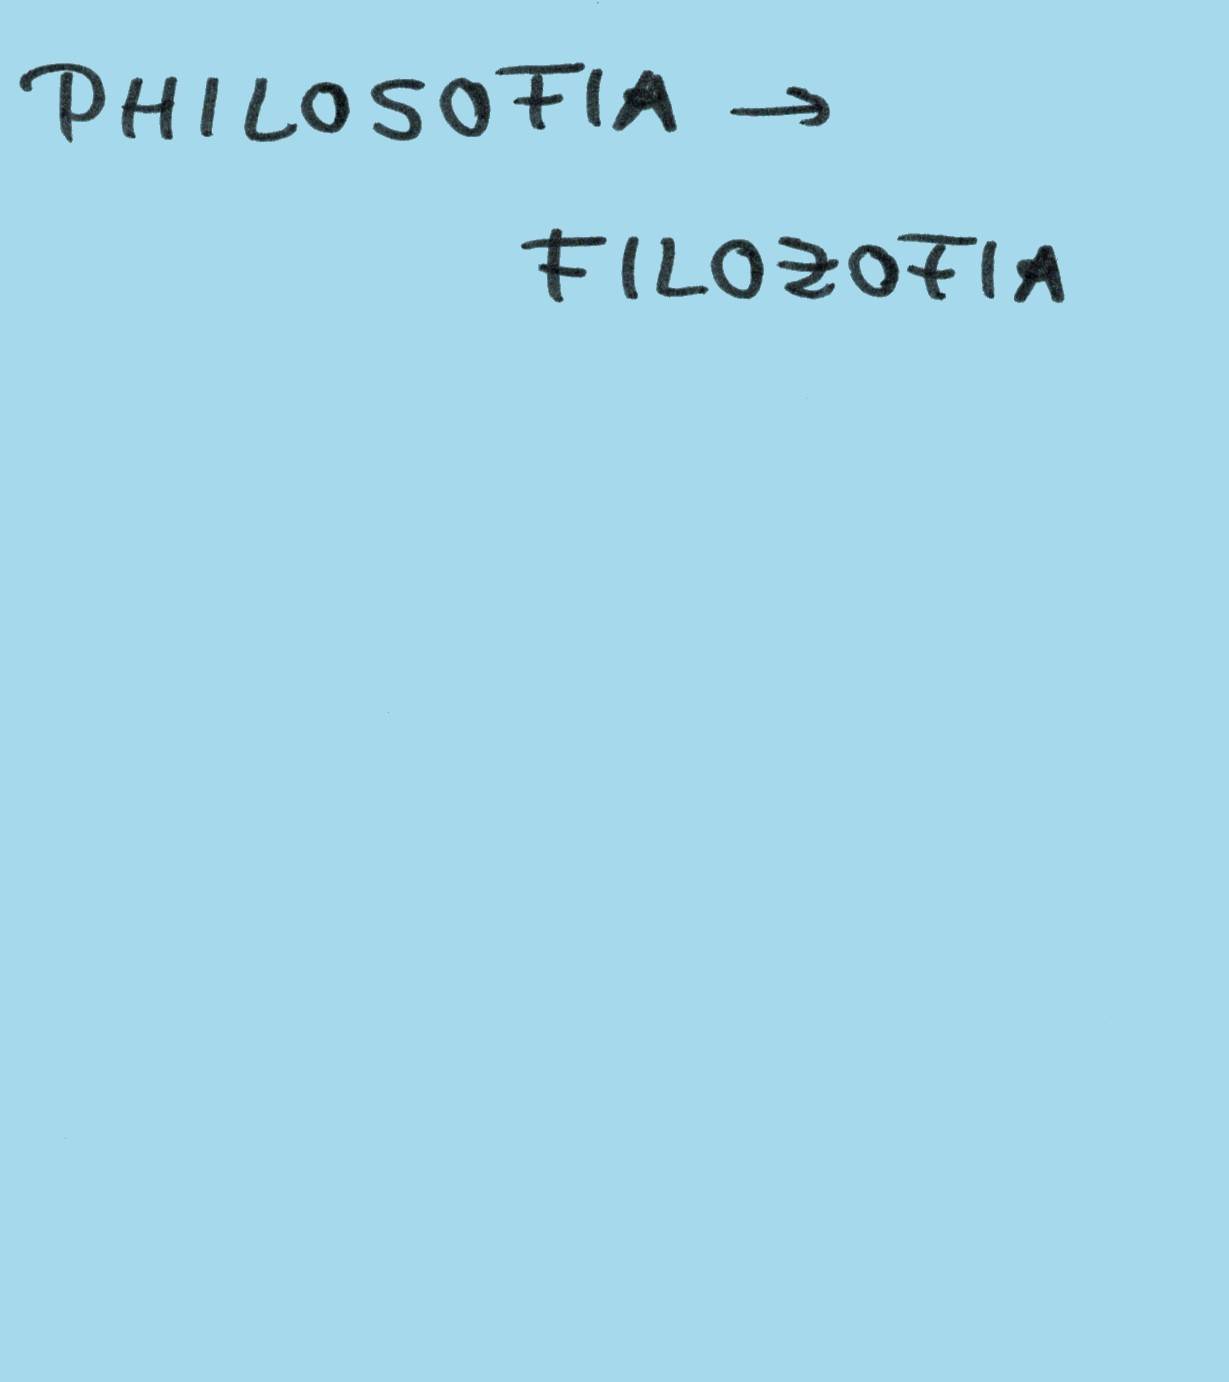 PHILOSOFIA →
FILOZOFIA